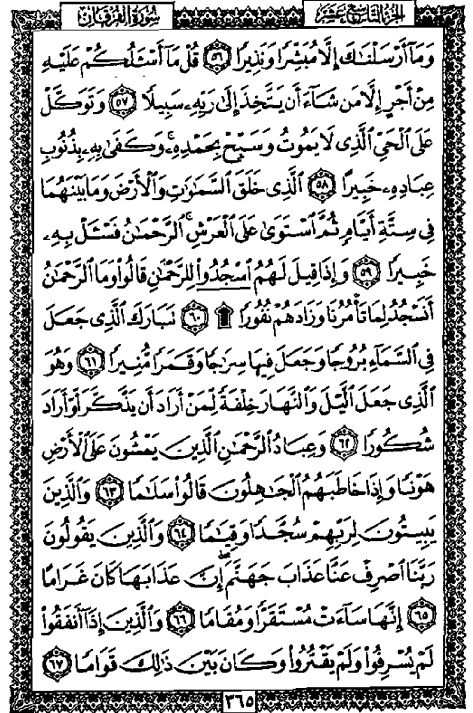 سُورَةُ الفُرْقَان الجُزْءُ التَّاسِعَ عَشَرَ
وَمَآ أَرْسَلْنَٰكَ إِلَّا مُبَشِّرًا وَنَذِيرًا ٥٦ قُلْ مَآ أَسْـَٔلُكُمْ عَلَيْهِ
مِنْ أَجْرٍ إِلَّا مَن شَآءَ أَن يَتَّخِذَ إِلَىٰ رَبِّهِۦ سَبِيلًا ٥٧ وَتَوَكَّلْ
عَلَى ٱلْحَىِّ ٱلَّذِى لَا يَمُوتُ وَسَبِّحْ بِحَمْدِهِۦ ۚ وَكَفَىٰ بِهِۦ بِذُنُوبِ
عِبَادِهِۦ خَبِيرًا ٥٨ ٱلَّذِى خَلَقَ ٱلسَّمَٰوَٰتِ وَٱلْأَرْضَ وَمَا بَيْنَهُمَا
فِى سِتَّةِ أَيَّامٍ ثُمَّ ٱسْتَوَىٰ عَلَى ٱلْعَرْشِ ۚ ٱلرَّحْمَٰنُ فَسْـَٔلْ بِهِۦ
خَبِيرًا ٥٩ وَإِذَا قِيلَ لَهُمُ ٱسْجُدُوا۟ لِلرَّحْمَٰنِ قَالُوا۟ وَمَا ٱلرَّحْمَٰنُ
أَنَسْجُدُ لِمَا تَأْمُرُنَا وَزَادَهُمْ نُفُورًا ۩ ٦٠ تَبَارَكَ ٱلَّذِى جَعَلَ
فِى ٱلسَّمَآءِ بُرُوجًا وَجَعَلَ فِيهَا سِرَٰجًا وَقَمَرًا مُّنِيرًا ٦١ وَهُوَ
ٱلَّذِى جَعَلَ ٱلَّيْلَ وَٱلنَّهَارَ خِلْفَةً لِّمَنْ أَرَادَ أَن يَذَّكَّرَ أَوْ أَرَادَ
شُكُورًا ٦٢ وَعِبَادُ ٱلرَّحْمَٰنِ ٱلَّذِينَ يَمْشُونَ عَلَى ٱلْأَرْضِ
هَوْنًا وَإِذَا خَاطَبَهُمُ ٱلْجَٰهِلُونَ قَالُوا۟ سَلَٰمًا ٦٣ وَٱلَّذِينَ
يَبِيتُونَ لِرَبِّهِمْ سُجَّدًا وَقِيَٰمًا ٦٤ وَٱلَّذِينَ يَقُولُونَ
رَبَّنَا ٱصْرِفْ عَنَّا عَذَابَ جَهَنَّمَ ۖ إِنَّ عَذَابَهَا كَانَ غَرَامًا
٦٥ إِنَّهَا سَآءَتْ مُسْتَقَرًّا وَمُقَامًا ٦٦ وَٱلَّذِينَ إِذَآ أَنفَقُوا۟
لَمْ يُسْرِفُوا۟ وَلَمْ يَقْتُرُوا۟ وَكَانَ بَيْنَ ذَٰلِكَ قَوَامًا ٦٧
٣٦٥